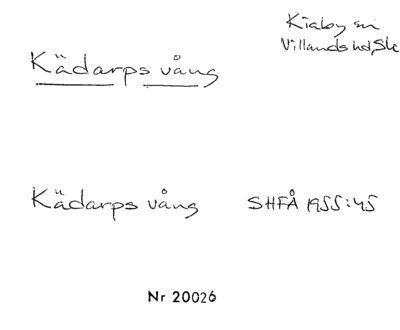 Kiaby sn
Villands hd, Sk
Kädarps vång
Kädarps vång SHFÅ 1955:45
Nr 20026